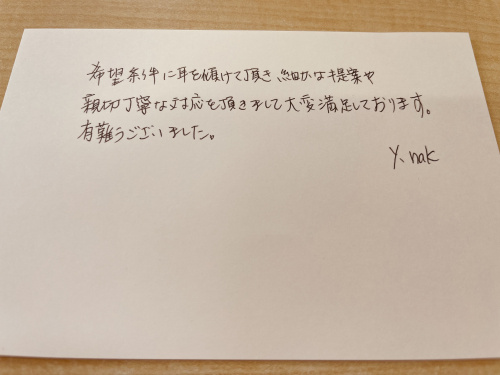 希望条件に耳を傾けて頂き、細かな提案や
親切丁寧な対応を頂きまして大変満足しております。
有難うございました。
Y.nak